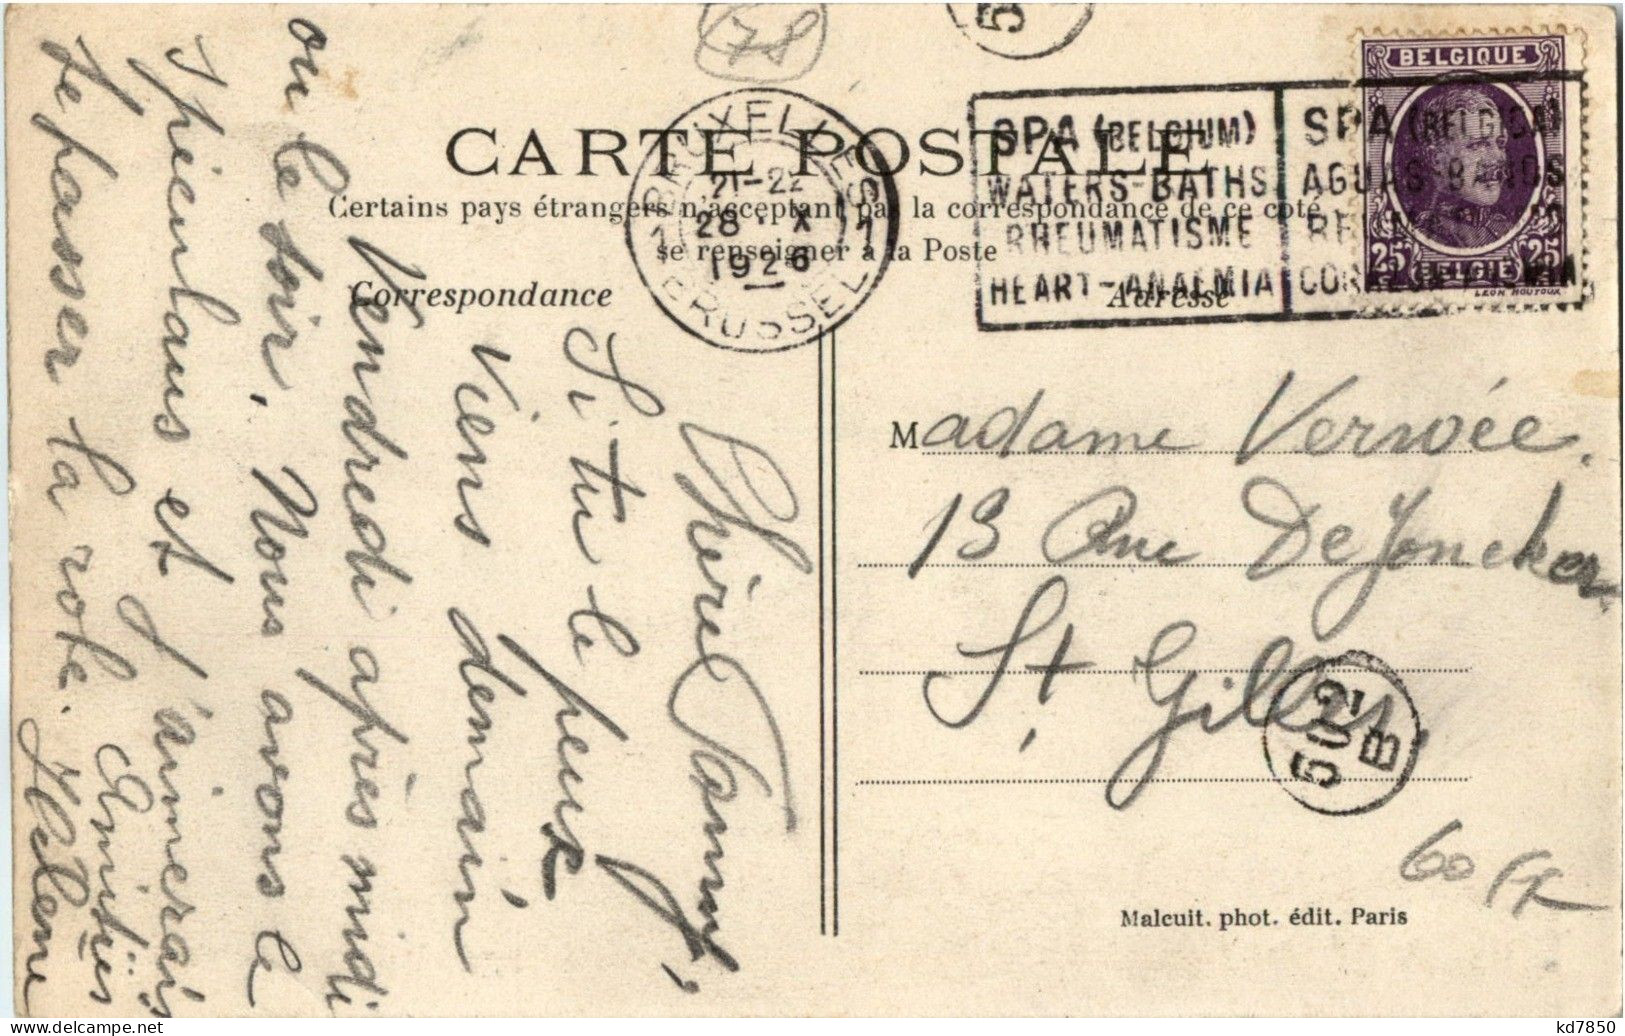 78
5
BELGIQUE
25 25
BELGIE
LEON HOUYOUX
BRUXELLES
21-22
28 X
1926
1 1
BRUSSEL
SPA (BELGIUM)
WATERS-BATHS
RHEUMATISME
HEART-ANAEMIA
SPA (BELGICA)
AGUAS-BANOS
CARTE POSTALE
Certains pays étrangers n'acceptant pas la correspondance de ce coté
se renseigner à la Poste
Correspondance
Adresse
Chère Fanny,
Si tu le peux
Viens demain
Vendredi après midi
ou le soir. Nous avons le
et j'aimerais
te passer ta robe. Amitiés
Hélene
Madame Verwée.
13 Rue De Joncker
St Gilles
5 B
60
Malcuit. phot. édit. Paris
kd7850